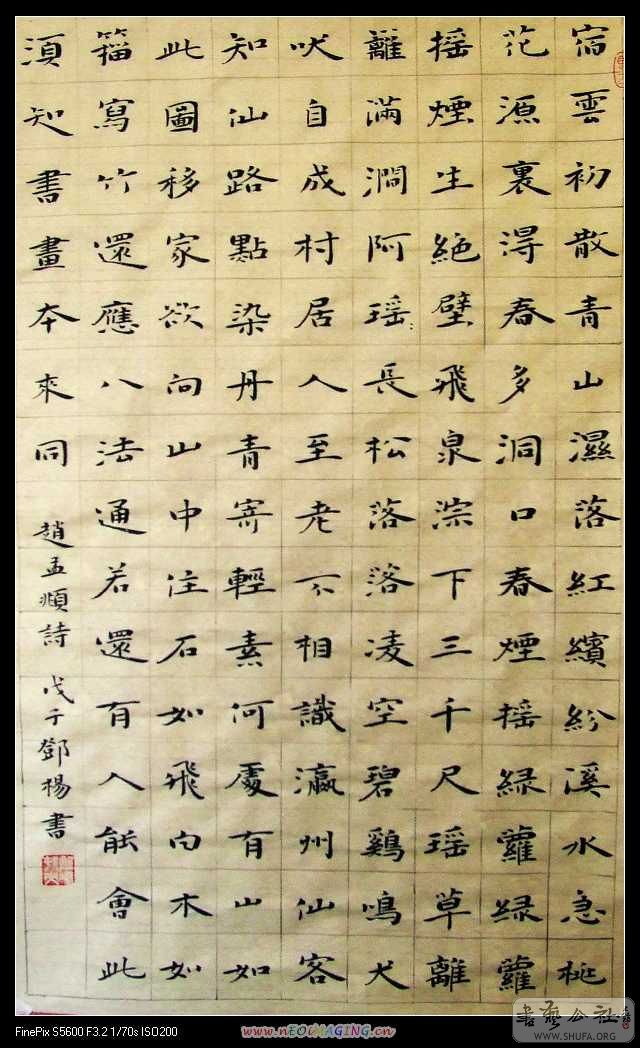 宿雲初散青山濕落紅繽紛溪水急桃
花源裏得春多洞口春煙摇緑蘿緑蘿
摇煙生絶壁飛泉淙下三千尺瑶草離
離滿澗阿瑶長松落落凌空碧鷄鳴犬
吠自成村居人至老不相識瀛州仙客
知仙路點染丹青寄輕素何處有山如
此圖移家欲向山中注石如飛白木如
籀寫竹還應八法通若還有人能會此
須知書畫本來同
趙孟頫詩 戊子鄧楊書
FinePix S5600 F3.2 1/70s ISO200
www.nEOiMAGING.cn
書藝公社
WWW.SHUFA.ORG